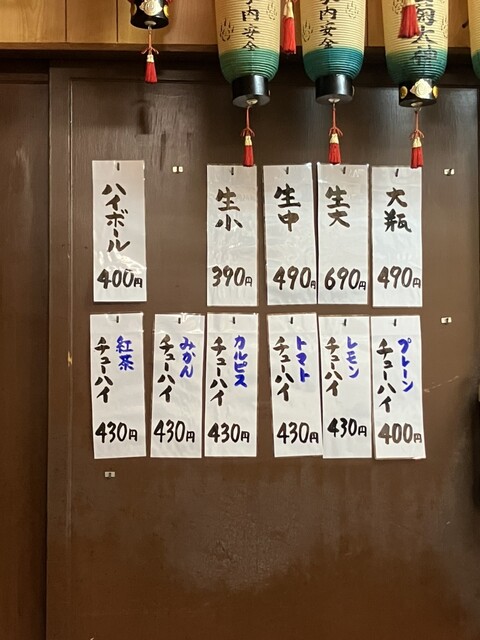 内安全
内安全
大瓶
490円
生大
690円
生中
490円
生小
390円
ハイボール
400円
プレーン
チューハイ
400円
レモン
チューハイ
430円
トマト
チューハイ
430円
カルピス
チューハイ
430円
みかん
チューハイ
430円
紅茶
チューハイ
430円